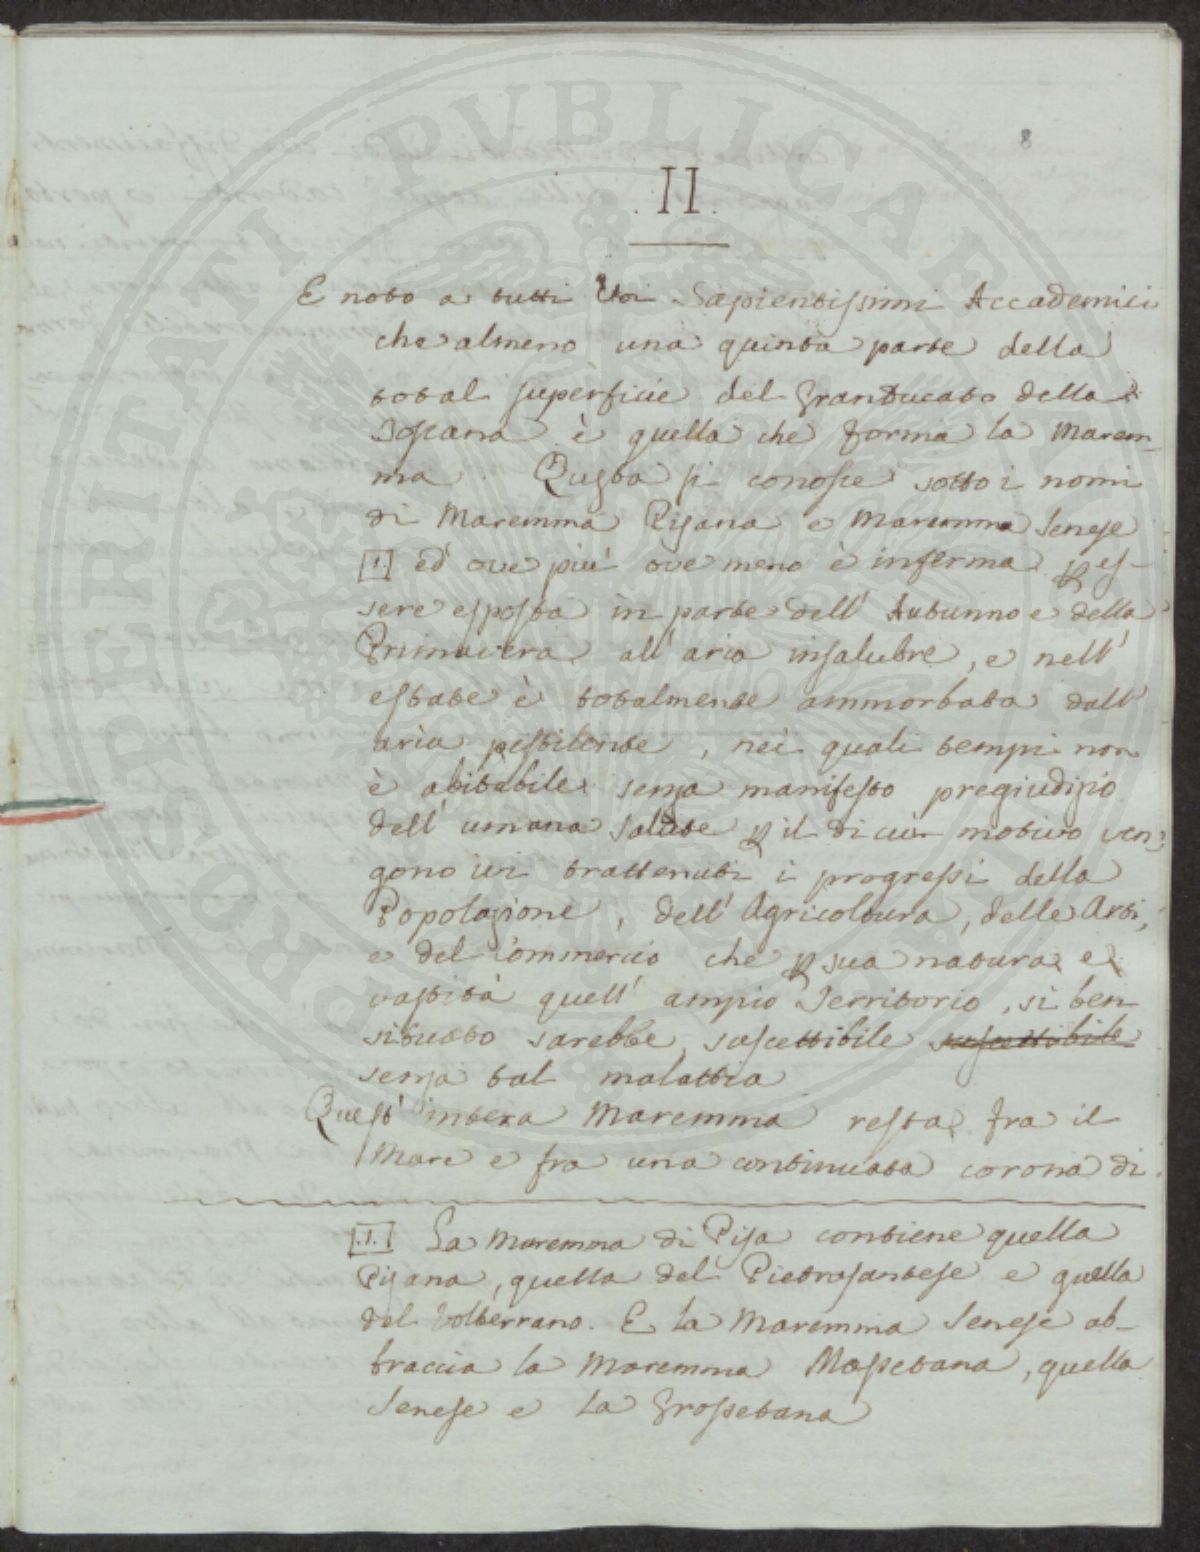 PROSPERITATI PUBLICAE AUGENDAE
8
.II.
E noto a tutti Voi Sapientissimi Accademici
che almeno una quinta parte della
total superficie del GranDucato della
Toscana è quella che forma la Marem-
ma. Questa si conosce sotto i nomi
di Maremma Pisana e Maremma Senese
[1] ed ove più ove meno è inferma p es-
sere esposta in parte dell' Autunno e della
Primavera all' aria insalubre, e nell'
estate è totalmente ammorbata dall'
aria pestilente, nei quali tempi non
è abitabile senza manifesto pregiudizio
dell' umana salute p il di cui motivo ven-
gono ivi trattenuti i progressi della
Popolazione, dell' Agricoltura, delle Arti,
e del Commercio che p sua natura e
vastità quell' ampio Territorio, sì ben
situato sarebbe suscettibile suscettibile
senza tal malattia
Quest' intera Maremma resta fra il
Mare e fra una continuata corona di
[.1.] La Maremma di Pisa contiene quella
Pisana, quella del Pietrasantese e quella
del Volterrano. E la Maremma Senese ab-
braccia la Maremma Massetana, quella
Senese e la Grossetana